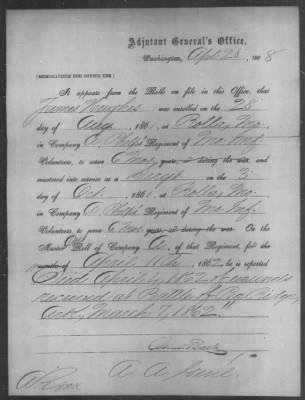 Adjutant General's Office,
Washington, Apl 28, 1868
(MEMORANDUM FOR OFFICE USE.)
It appears from the Rolls on file in this Office, that
James Hughes was enrolled on the 28
day of Aug, 1861 at Rolla, Mo.
in Company A, Phelps Regiment of Mo. Inf.
Volunteers, to serve 6 Mos years, or during the war, and
mustered into service as a Sergt on the 3
day of Oct. 1861 at Rolla, Mo.
in Company A, Phelps Regiment of Mo. Inf.
Volunteers, to serve 6 Mos years, or during the war. On the
Muster Out Roll of Company A, of that Regiment, for the
months of April 11th 1862 he is reported
"Died April 6, 1862 of wounds
received at Battle of Pea Ridge,
Ark., March 7, 1862."
A. A. Genl.